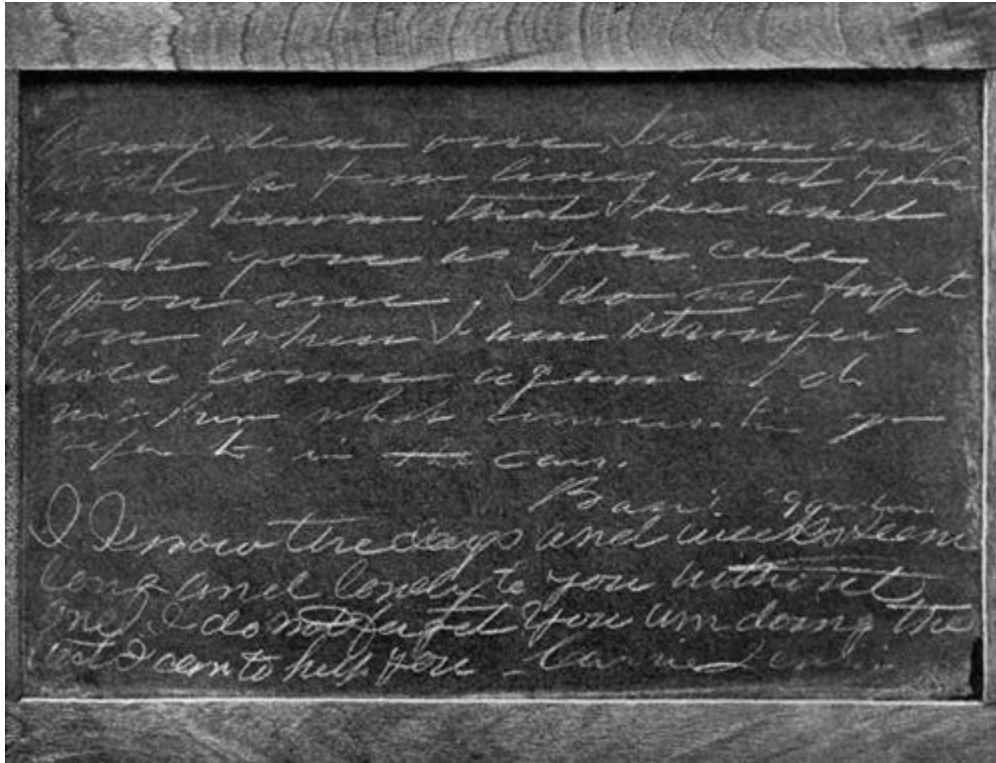 my dear one, I can only
write a few lines that you
may know that I see and
hear you as you call
upon me, I do not forget
you when I am stronger
will come again I do
not know what you
in the case.
I know the days and weeks seem
long and lonely to you without
me I do not forget you am doing the
best I can to help you Carrie